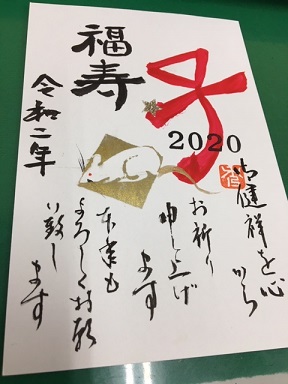 福寿
子
2020
令和二年
御健祥を心
から
お祈り
申し上げ
ます
本年も
よろしくお願
い致し
ます